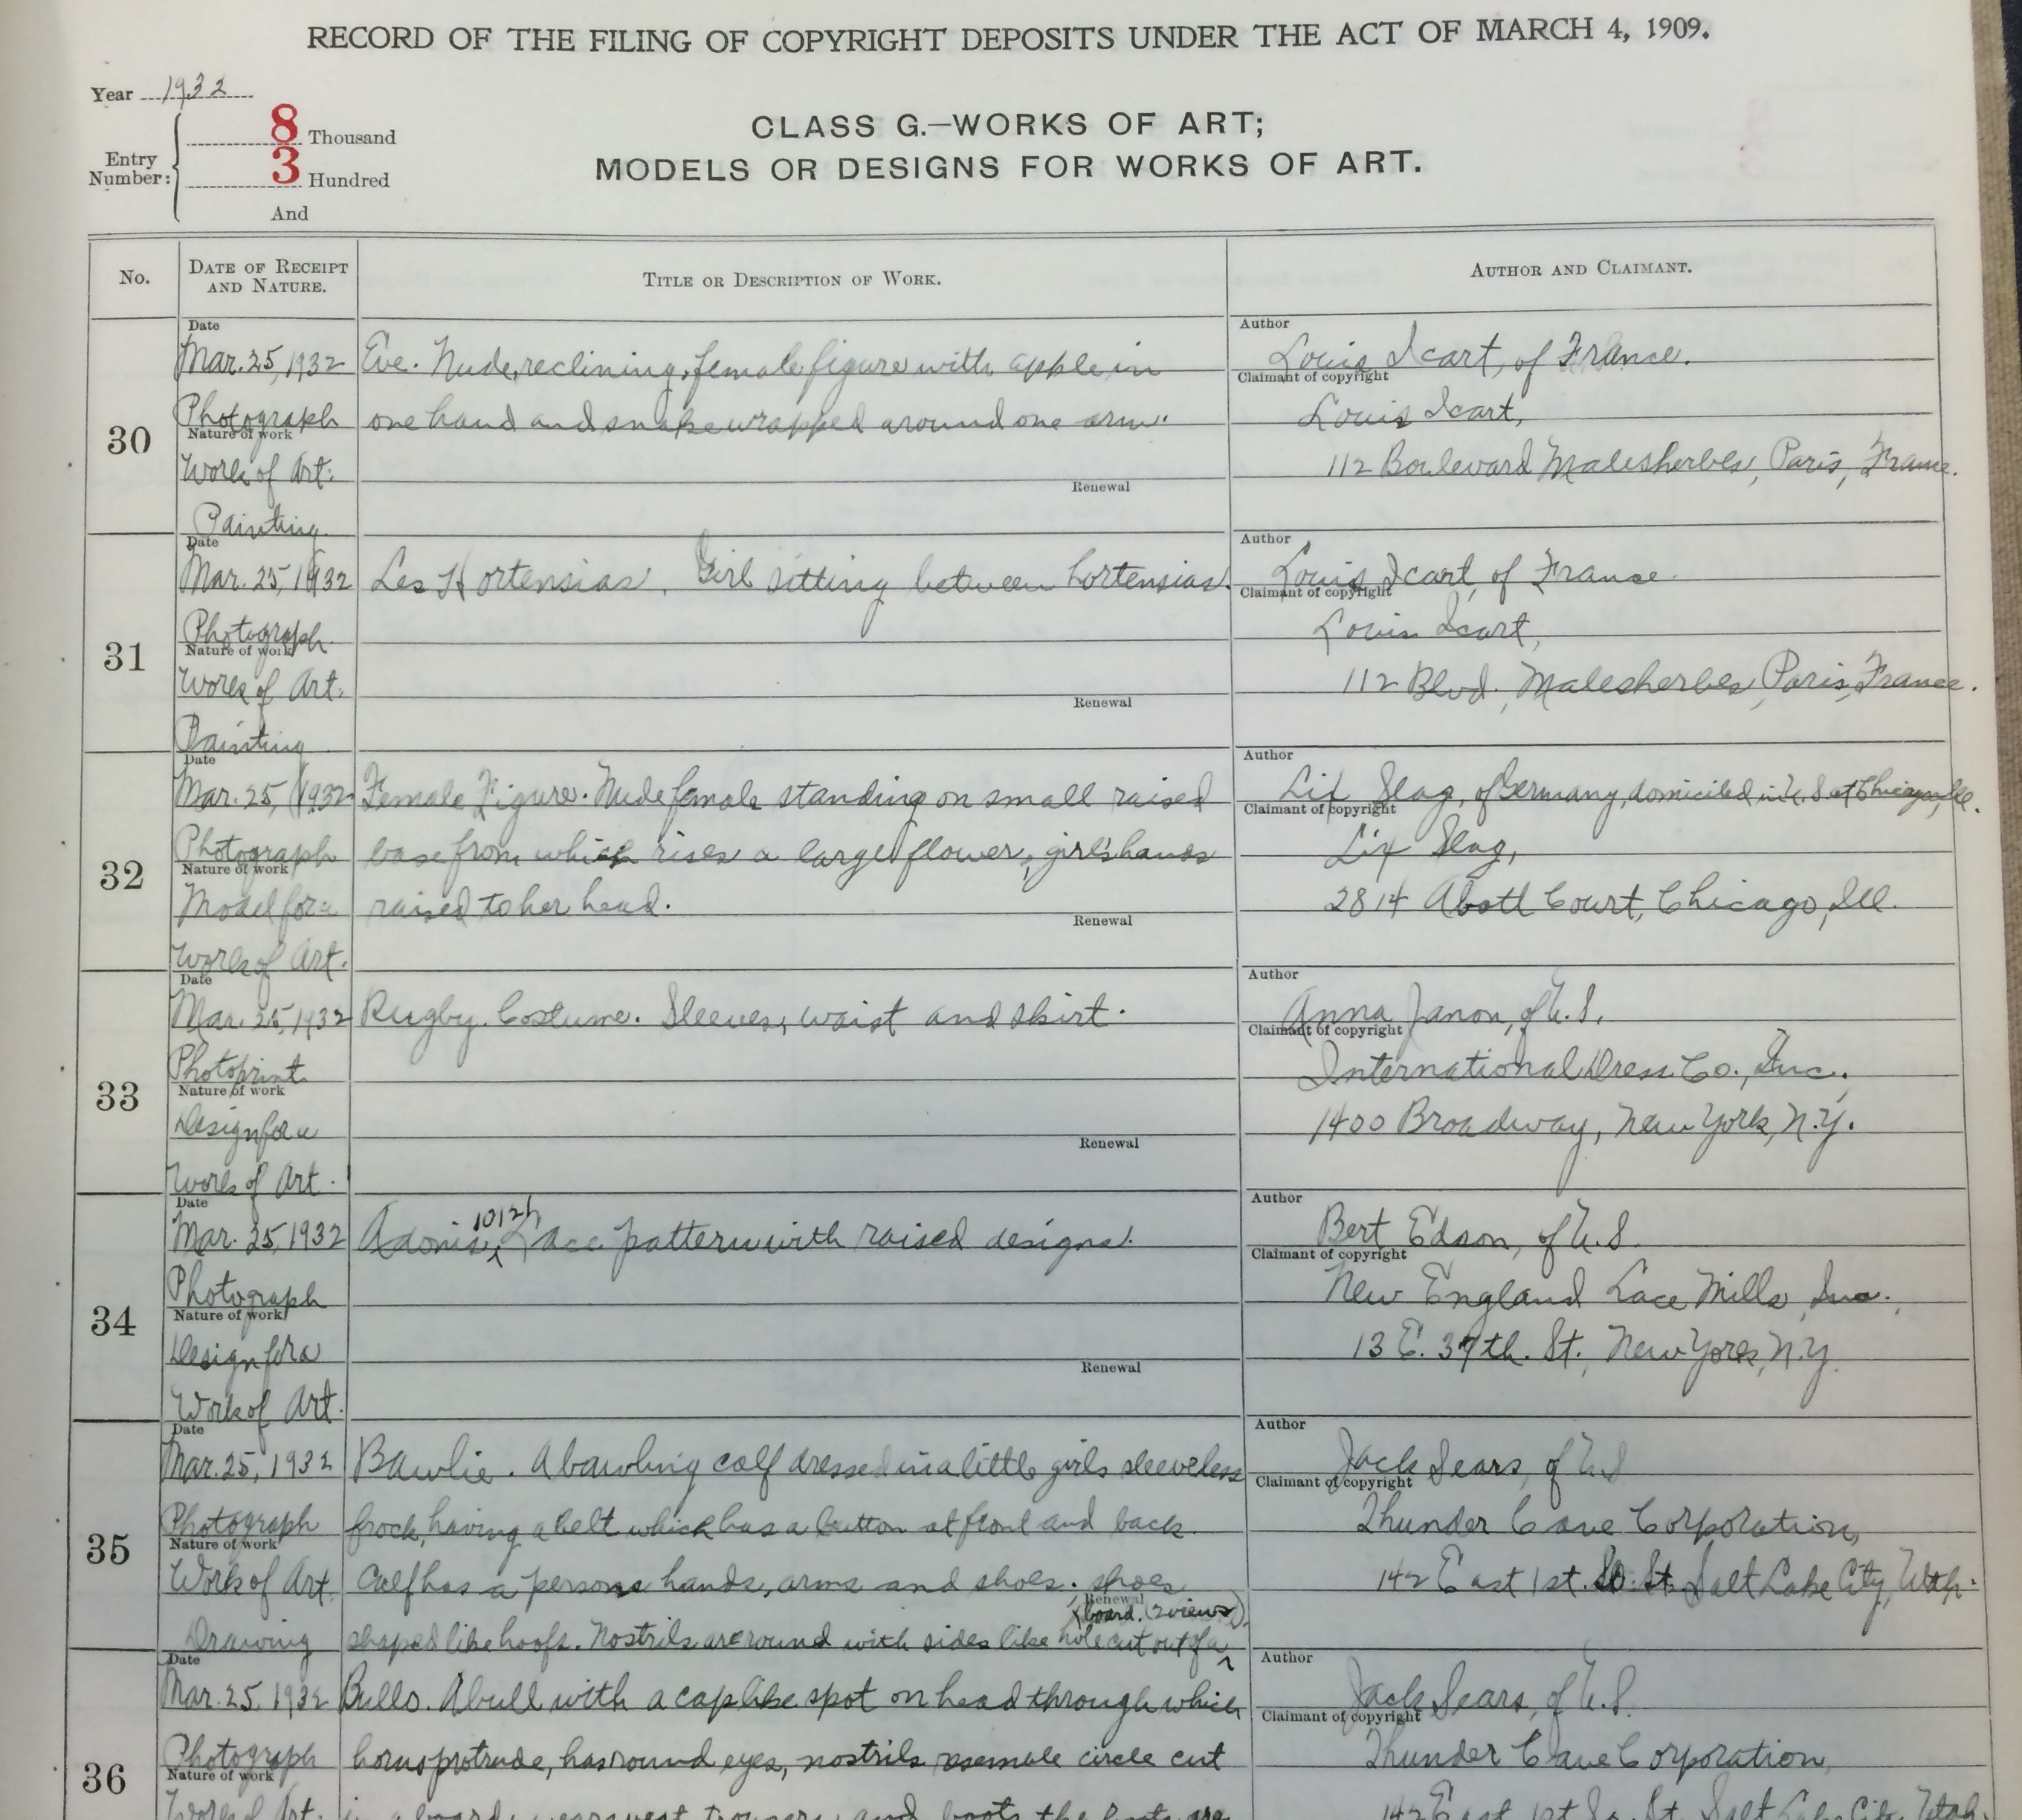 RECORD OF THE FILING OF COPYRIGHT DEPOSITS UNDER THE ACT OF MARCH 4, 1909.
Year 1932
Entry Number:
8 Thousand
3 Hundred
And
CLASS G.—WORKS OF ART;
MODELS OR DESIGNS FOR WORKS OF ART.
No.
DATE OF RECEIPT AND NATURE.
TITLE OR DESCRIPTION OF WORK.
AUTHOR AND CLAIMANT.
30
Date
Mar. 25, 1932
Photograph
Nature of work
Work of Art:
Painting.
Eve. Nude, reclining, female figure with apple in
one hand and snake wrapped around one arm.
Renewal
Author
Louis Icart, of France.
Claimant of copyright
Louis Icart,
112 Boulevard Malesherbes, Paris, France.
31
Date
Mar. 25, 1932
Photograph.
Nature of work
Work of Art:
Painting
Les Hortensias. Girl sitting between hortensias.
Renewal
Author
Louis Icart, of France.
Claimant of copyright
Louis Icart,
112 Blvd. Malesherbes, Paris, France.
32
Date
Mar. 25, 1932
Photograph
Nature of work
Model for a
Work of Art.
Female Figure. Nude female standing on small raised
base from which rises a large flower, girl's hands
raised to her head.
Renewal
Author
of Germany, domiciled in U.S. at Chicago, Ill.
Claimant of copyright
2814 Abott Court, Chicago, Ill.
33
Date
Mar. 25, 1932
Photoprint
Nature of work
Design for a
Work of Art.
Rugby. Costume. Sleeves, waist and skirt.
Renewal
Author
Anna Janon, of U.S.
Claimant of copyright
International Dress Co., Inc.,
1400 Broadway, New York, N.Y.
34
Date
Mar. 25, 1932
Photograph
Nature of work
Design for a
Work of Art.
Adonis, 1012h Lace pattern with raised designs.
Renewal
Author
Bert Edson, of U.S.
Claimant of copyright
New England Lace Mills, Inc.,
13 E. 37th. St., New York, N.Y.
35
Date
Mar. 25, 1932
Photograph
Nature of work
Work of Art.
Drawing
Bawlie. A bawling calf dressed in a little girls sleeveless
frock, having a belt which has a button at front and back.
Calf has a persons hands, arms and shoes. shoes
Renewal
shaped like hoofs. Nostrils are round with sides like hole cut out of a board. (2 views)
Author
Jack Sears, of U.S
Claimant of copyright
Thunder Cave Corporation,
142 East 1st. So. St. Salt Lake City, Utah.
36
Date
Mar. 25, 1932
Photograph
Nature of work
Work of Art.
Bullo. A bull with a cap like spot on head through which
horns protrude, has round eyes, nostrils resemble circle cut
in a board, wears vest, trousers, and boots the boots are
Author
Jack Sears, of U.S.
Claimant of copyright
Thunder Cave Corporation,
142 East 1st So. St. Salt Lake City, Utah.